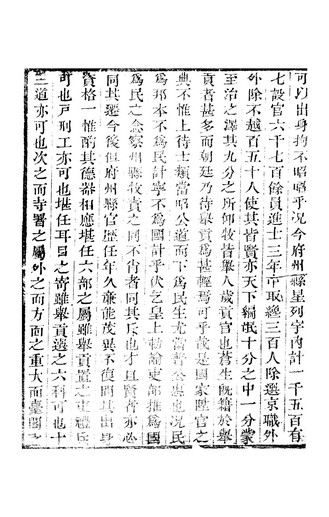 可以出身拘不昭昭乎况今府州縣星列宇內計一千五百有
七設官六千七百餘員進士三年一取纔三百人除選京職外
外除不越百五十人使其皆賢亦天下編氓十分之中一分蒙
至治之澤其九分之所仰牧皆舉人歲貢官也蒼生旣藉於舉
貢者甚多而朝廷乃待舉貢爲甚輕焉可乎哉是國家陞官之
典不惟上待士類當昭公道而下爲民生尤當普公惠也况民
爲邦本不爲民計寧不爲國計乎伏乞皇上勅諭吏部推爲國
爲民之念察州縣牧責之同不肖者同其斥也才且賢者亦必
同其選今後但府州縣官歷任年久兼能茂異不復問其出身
資格一惟酌其德器相應堪任六部之屬雖舉貢置之吏禮兵
可也戸刑工亦可也堪任耳目之寄雖舉貢選之六科可也十
三道亦可也次之而寺署之屬外之而方面之重大而臺閣之